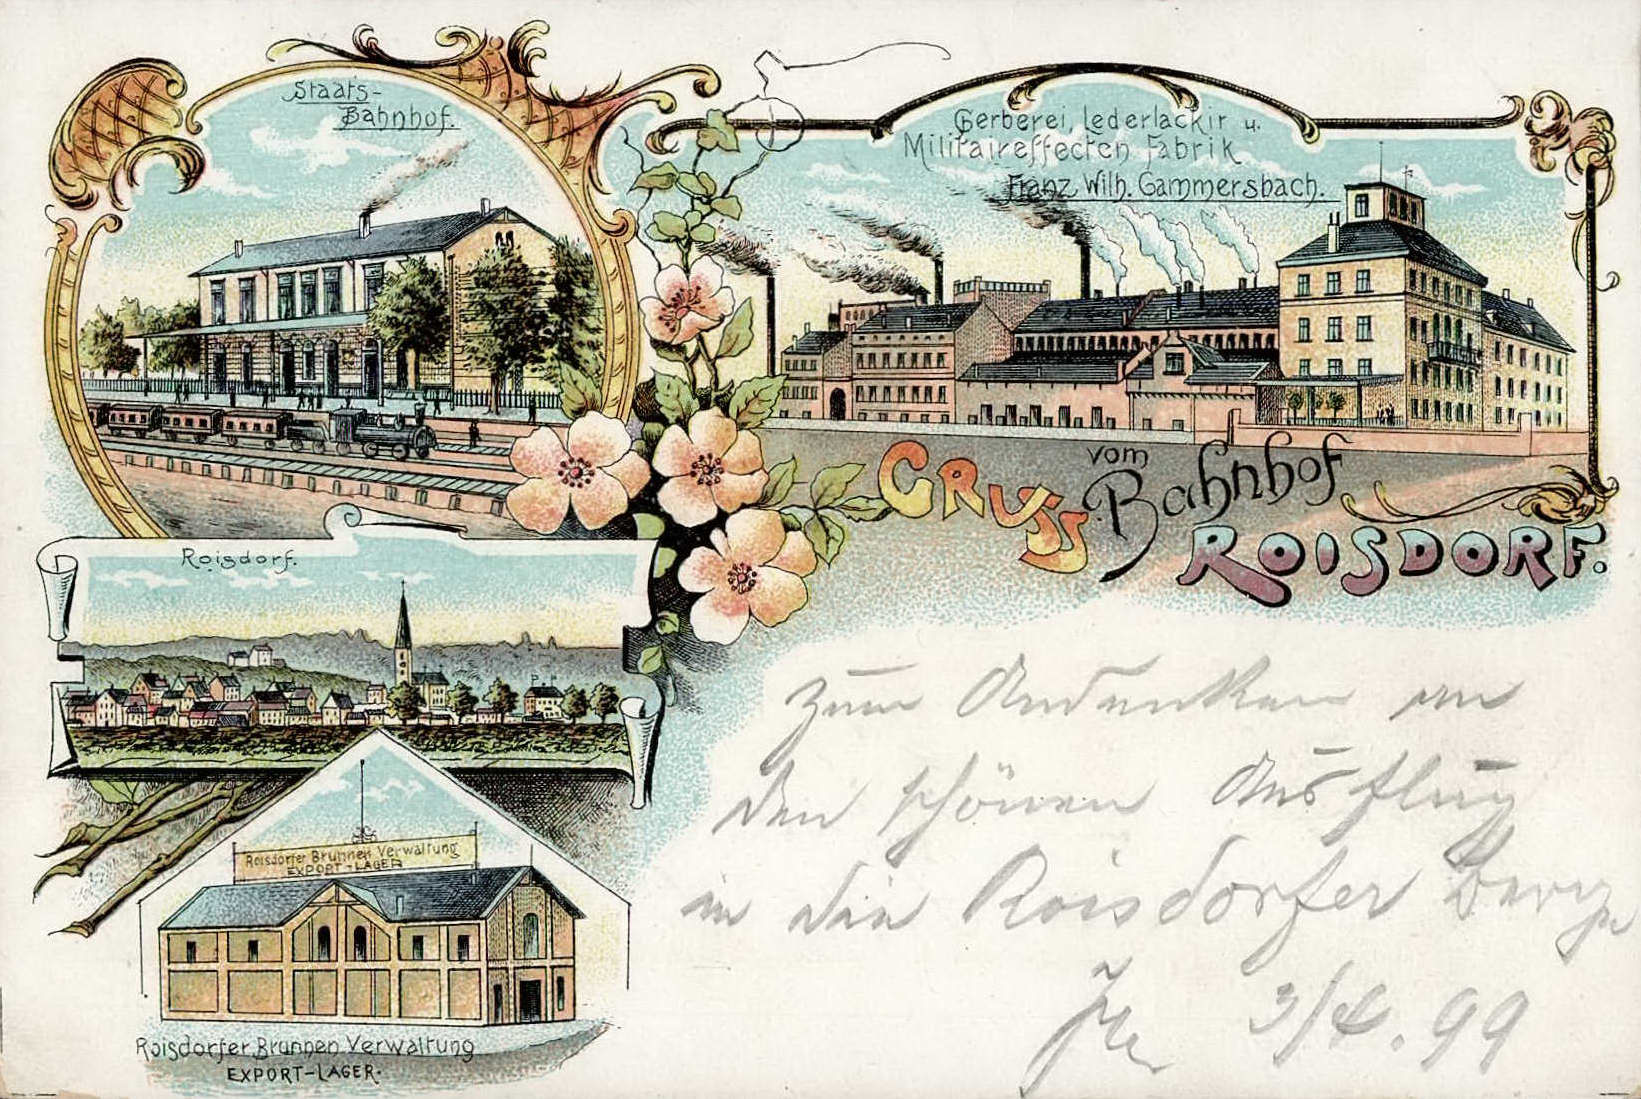 Staats-
Bahnhof.
Gerberei, Lederlackir u.
Militaireffecten Fabrik
Franz Wilh. Gammersbach.
GRUSS vom
Bahnhof
ROISDORF.
Roisdorf.
Roisdorfer Brunnen Verwaltung
EXPORT-LAGER
Roisdorfer Brunnen Verwaltung
EXPORT-LAGER.
Zum Andenken an
den schönen Ausflug
in die Roisdorfer Berge
3/4.99